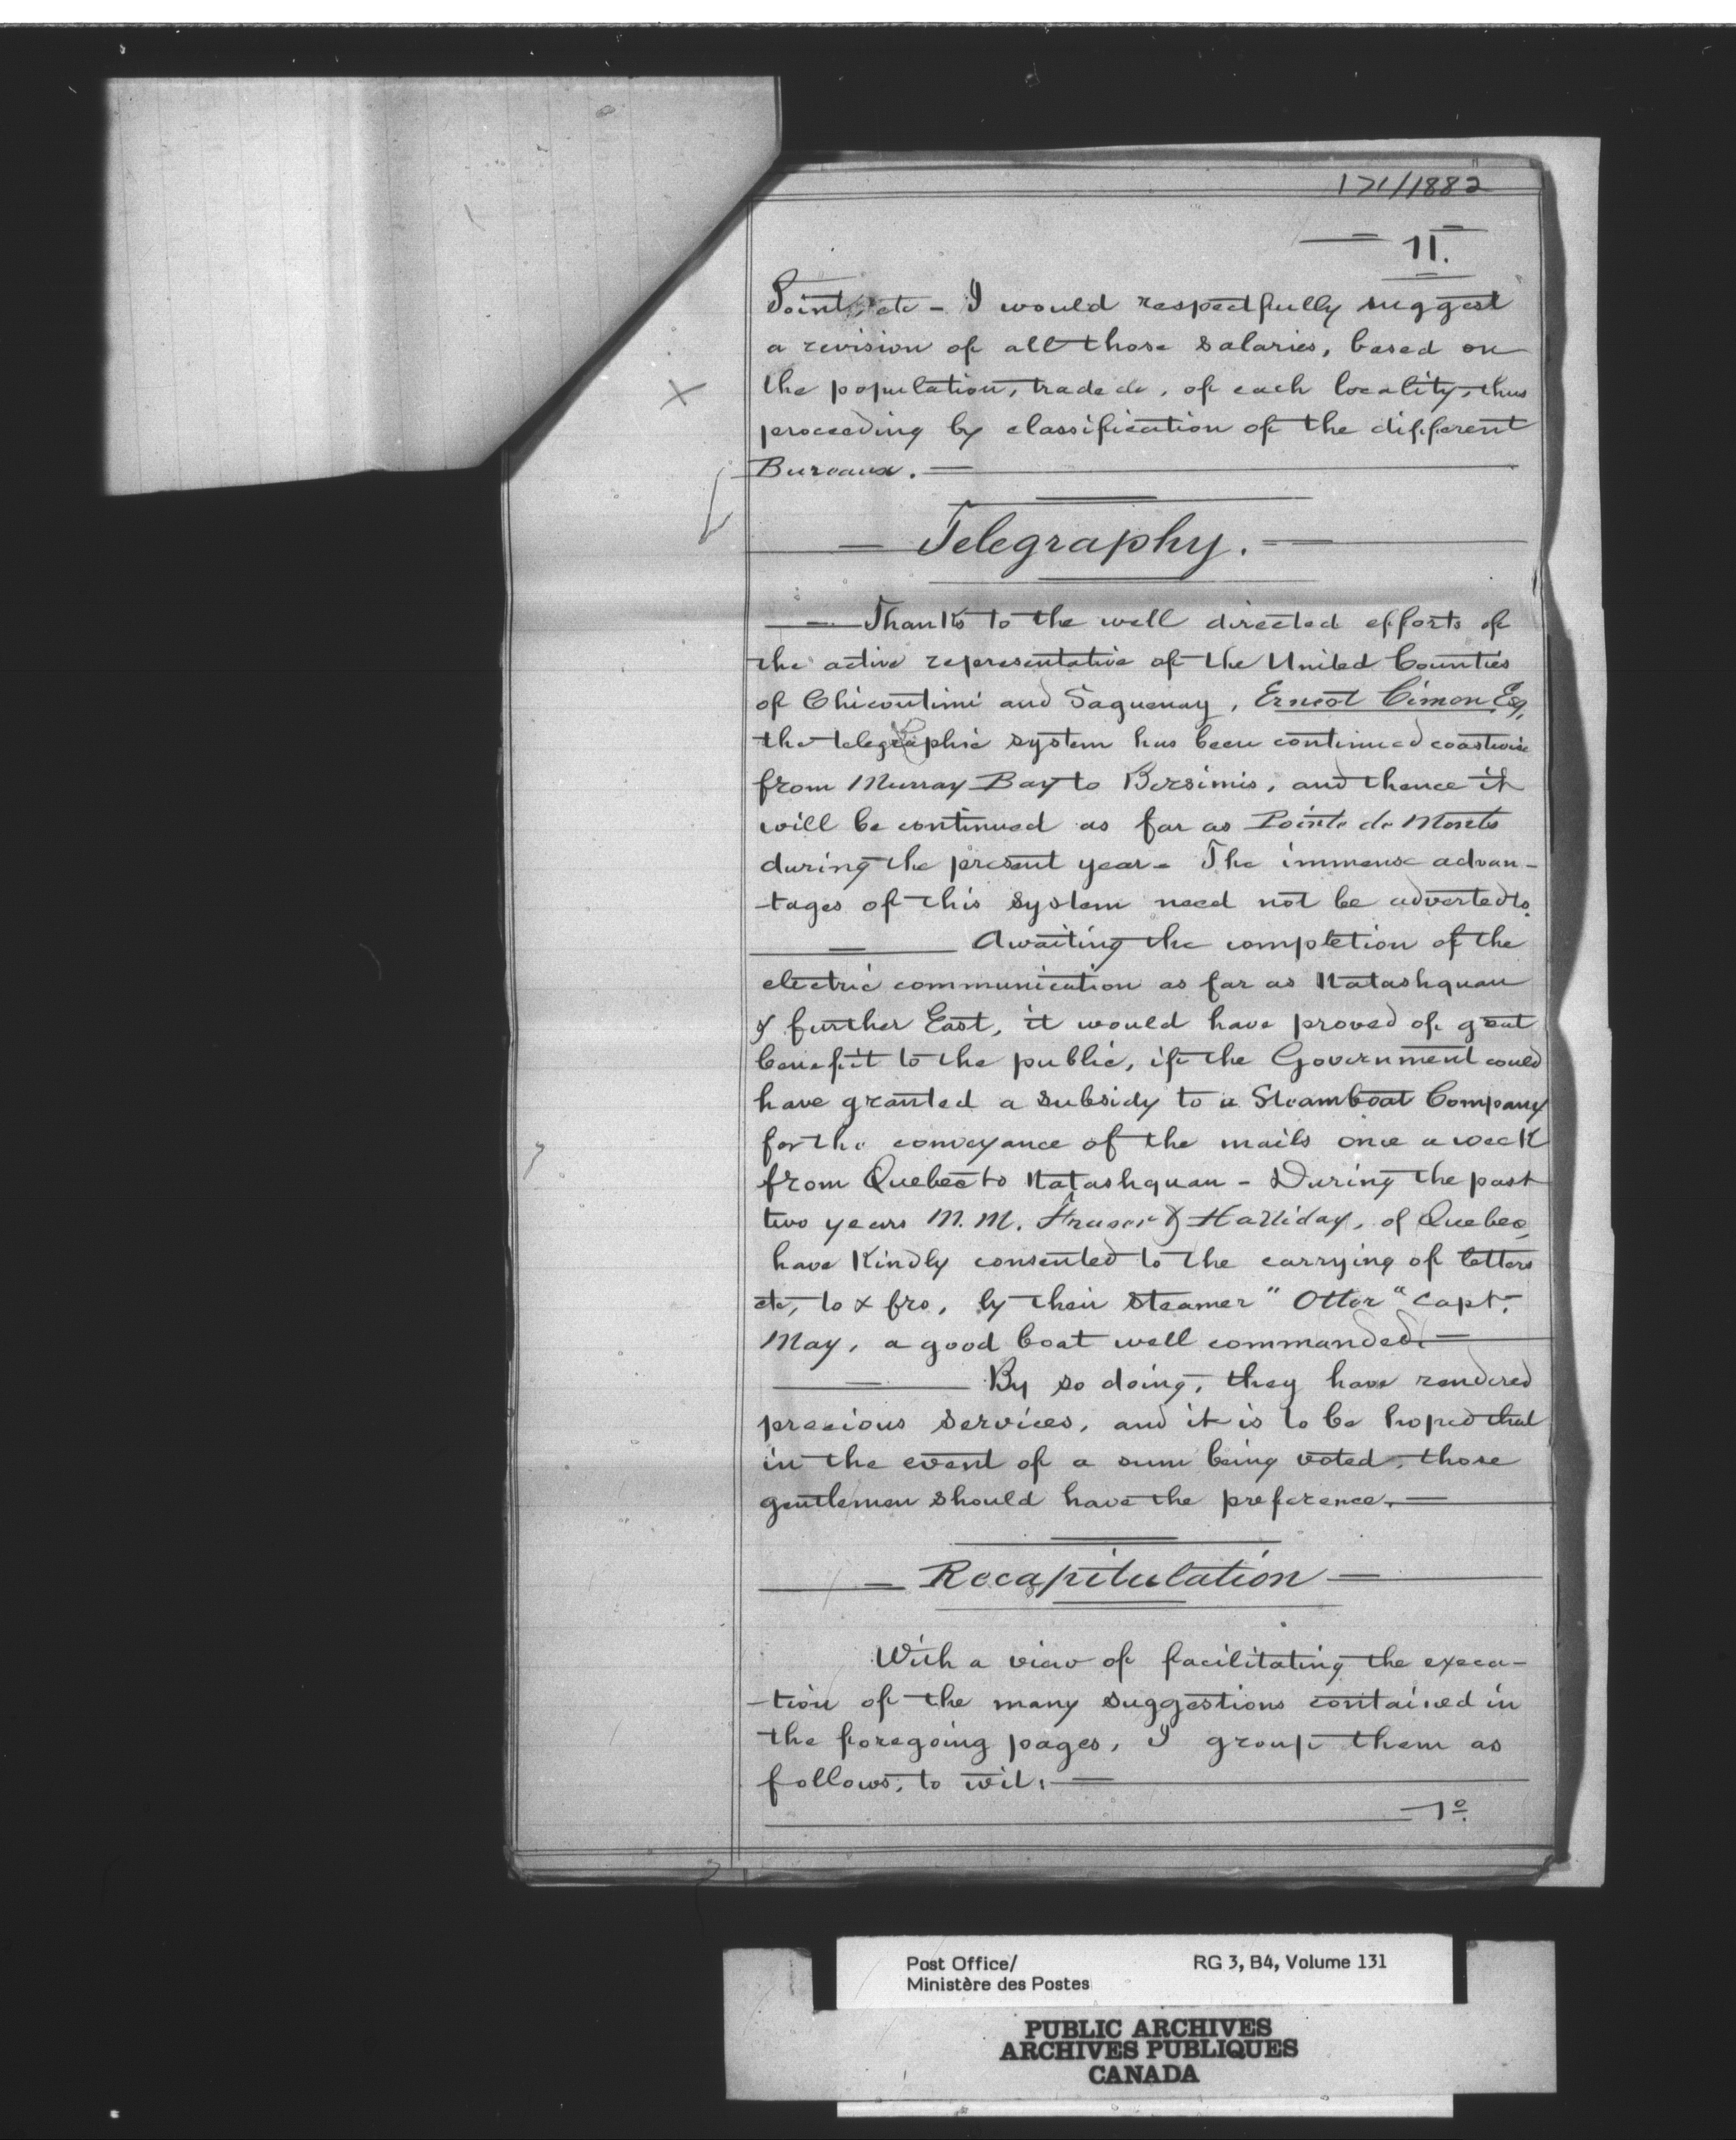 171/1882
11.
Point, etc - I would respectfully suggest
a revision of all those salaries, based on
the population, trade &c, of each locality, thus
proceeding by classification of the different
Bureaux.
Telegraphy.
Thanks to the well directed efforts of
the active representative of the United Counties
of Chicoutimi and Saguenay, Ernest Cimon Esq,
the telegraphic system has been continued coastwise
from Murray Bay to Bersimis, and thence it
will be continued as far as Pointe de Monts
during the present year - The immense advan-
-tages of this system need not be adverted to.
Awaiting the completion of the
electric communication as far as Natashquan
& further East, it would have proved of great
benefit to the public, if the Government could
have granted a subsidy to a Steamboat Company
for the conveyance of the mails once a week
from Quebec to Natashquan - During the past
two years M.M. Fraser & Halliday, of Quebec,
have Kindly consented to the carrying of letters
etc, to & fro, by their steamer "Otter" Capt.
May, a good boat well commanded.
By so doing, they have rendered
precious services, and it is to be hoped that
in the event of a sum being voted, those
gentlemen should have the preference.
Recapitulation
With a view of facilitating the execu-
-tion of the many suggestions contained in
the foregoing pages, I group them as
follows, to wit:
1o
Post Office/
Ministère des Postes
RG 3, B4, Volume 131
PUBLIC ARCHIVES
ARCHIVES PUBLIQUES
CANADA